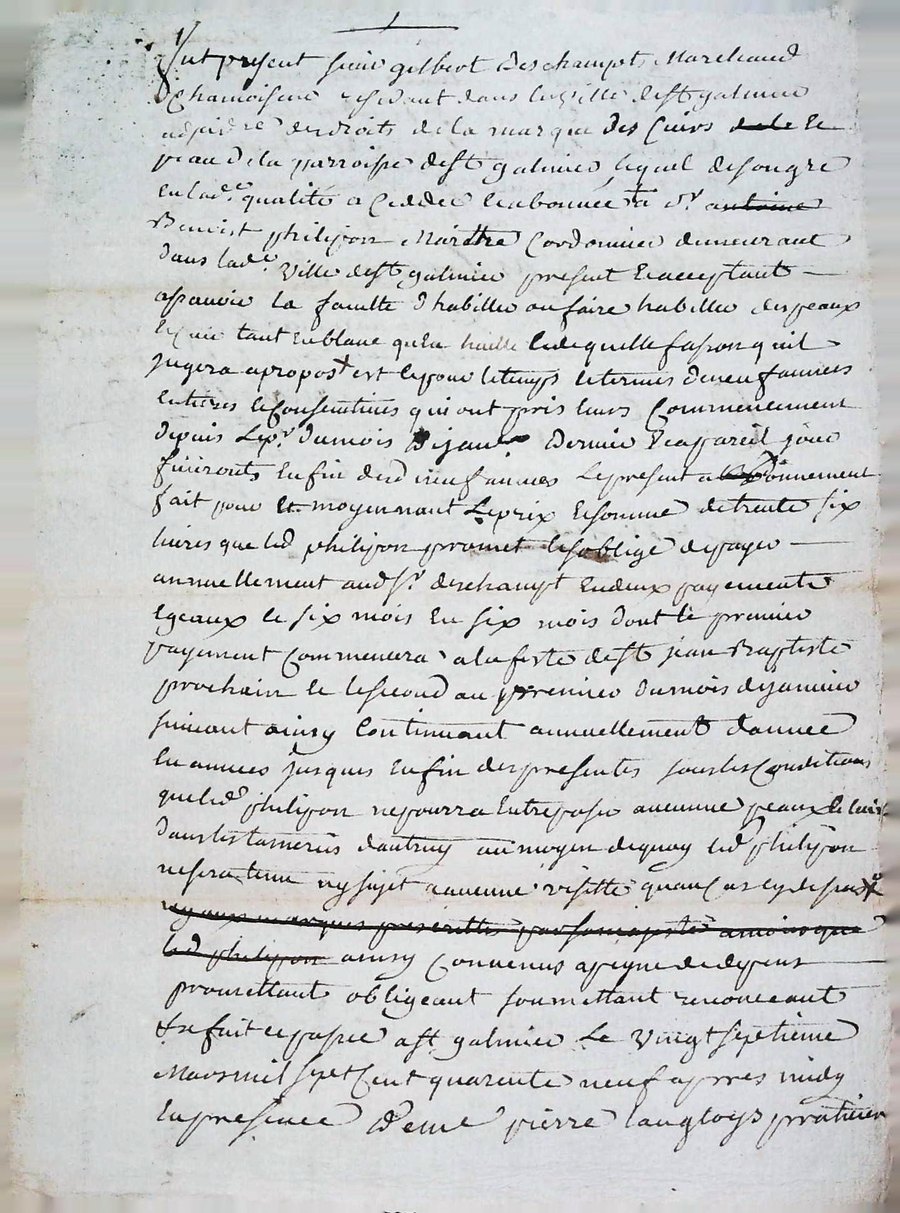 fut present sieur gilbert deschampt marchand
chamoiseur residant dans la ville de st galmier
des droits de la marque des cuirs de la et
peau de la parroisse de st galmier lequel de son gré
en lad.e qualité a ceddé et abonnée a sr antoine
Benoist philipon Maittre Cordonnier demeurant
dans lad.e ville de st galmier present et acceptant
assavoir la faculte d'habiller ou faire habiller des peaux
et cuir tant en blanc qu'en huille et de quelle fasson quil
jugera apropos x est ce pour le temps et termes de neuf années
entieres et consecutives qui ont pris leurs commencement
depuis le pr. du mois de janvr dernier et a pareil jour
finironts en fin desd neuf années le present abbonnement
fait pour et moyennant le prix et somme de trente six
livres que led philipon promet et s'oblige de payer
annuellement aud sr. deschampt en deux payements
egeaux de six mois en six mois dont le premier
payement commencera a la feste de st jean Baptiste
prochain et le second au premier du mois de janvier
suivant ainsy continuant annuellement d'année
en années jusques en fin des presentes sous les conditions
que led philipon ne pourra entreposer aucunne peaux et cuirs
dans les tanneries d'autruy au moyen dequoy led philipon
ne sera tenu ny sujet a aucune visitte quau cas cy dessus
ny aux marques prescrittes par sa majesté a moins que
led philipon ainsy convenus a peyne de depens
promettant obligeant soumettant renonceant
fait et passé a st galmier le vingt septieme
mars mil sept cent quarente neuf apres midy
en presence de me pierre langloys praticien